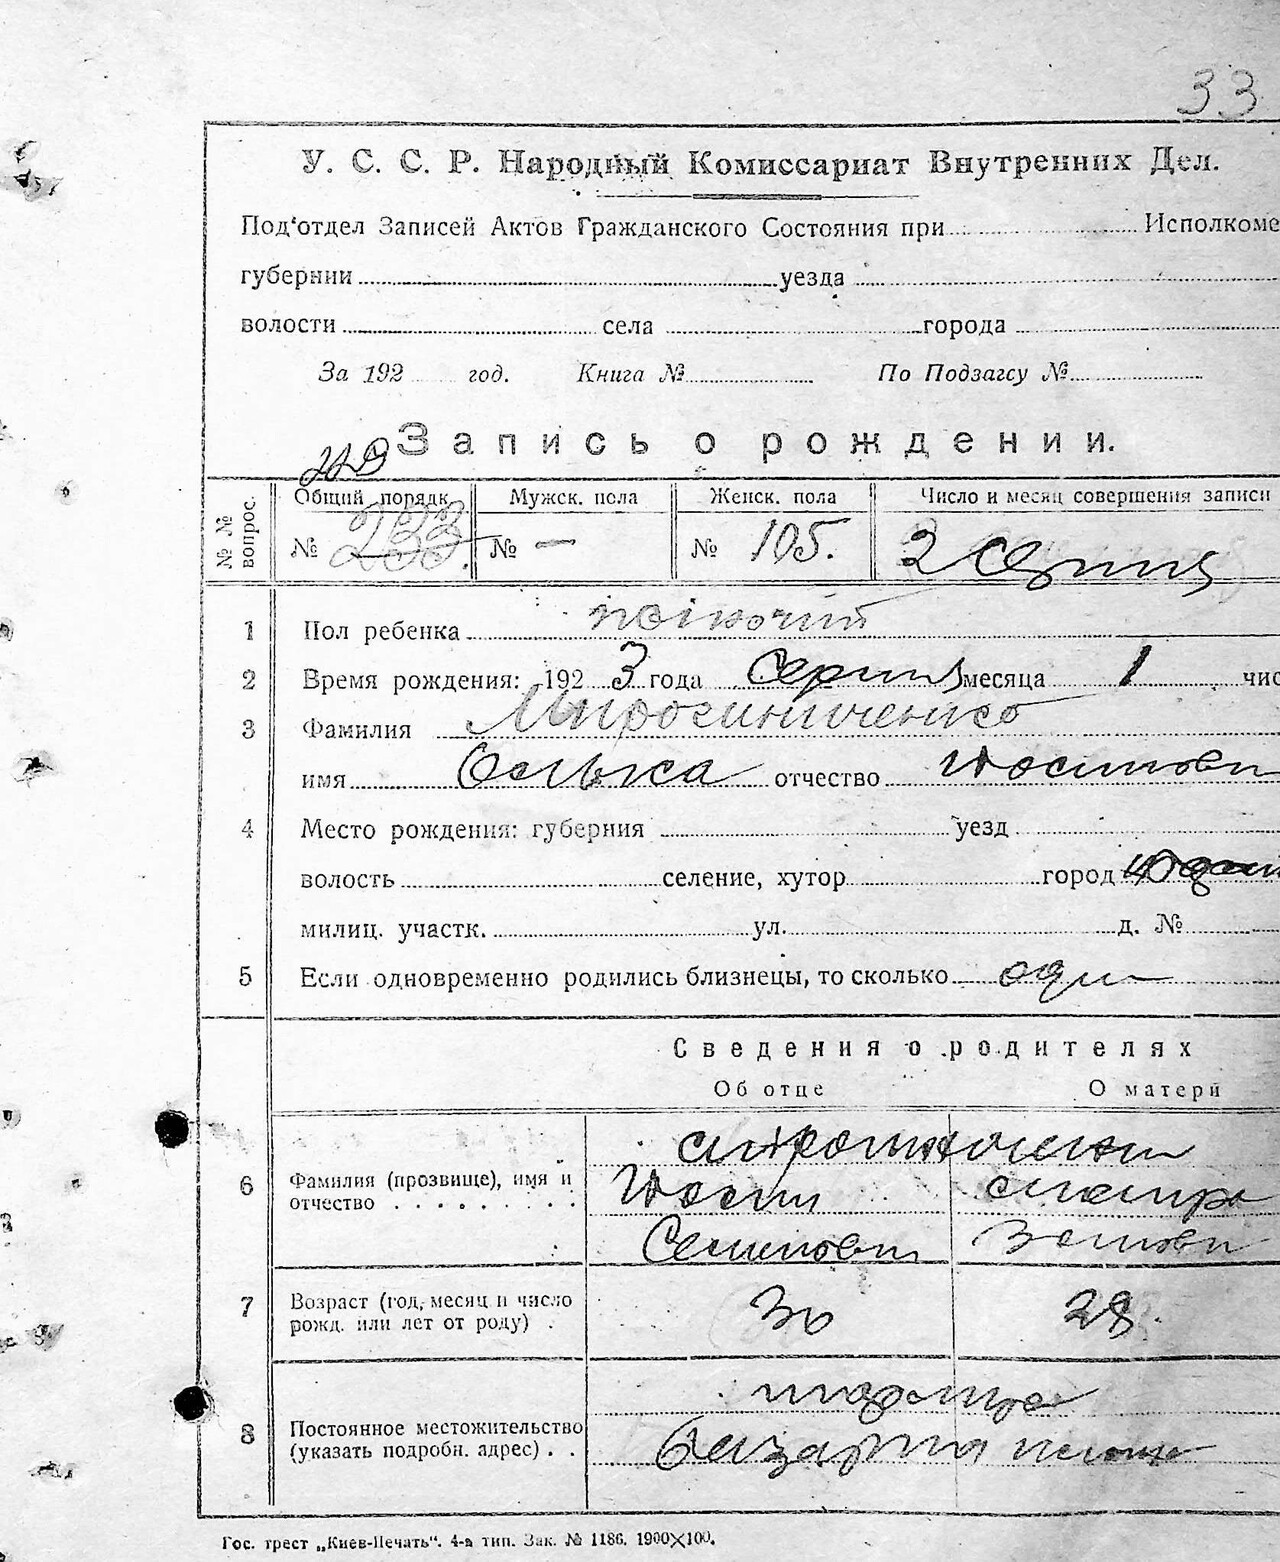 33
У. С. С. Р. Народный Комиссариат Внутренних Дел.
Под'отдел Записей Актов Гражданского Состояния при Исполкоме
губернии уезда
волости села города
За 192 год. Книга № По Подзагсу №
Запись о рождении.
№ № вопрос. Общий порядк. Мужск. пола Женск. пола Число и месяц совершения записи
№ 233 № — № 105. 2 серпня
1 Пол ребенка жіночий
2 Время рождения: 1923 года серпня месяца 1 чис
3 Фамилия Мирошниченко
имя Олька отчество Йосипови
4 Место рождения: губерния уезд
волость селение, хутор город
милиц. участк. ул. д. №
5 Если одновременно родились близнецы, то сколько один
Сведения о родителях
Об отце О матери
6 Фамилия (прозвище), имя и отчество
Йосип
Семенович
7 Возраст (год, месяц и число рожд. или лет от роду) . 30 28.
8 Постоянное местожительство (указать подробн. адрес) . .
базарна площа
Гос. трест „Киев-Печать". 4-я тип. Зак. № 1186. 1900×100.